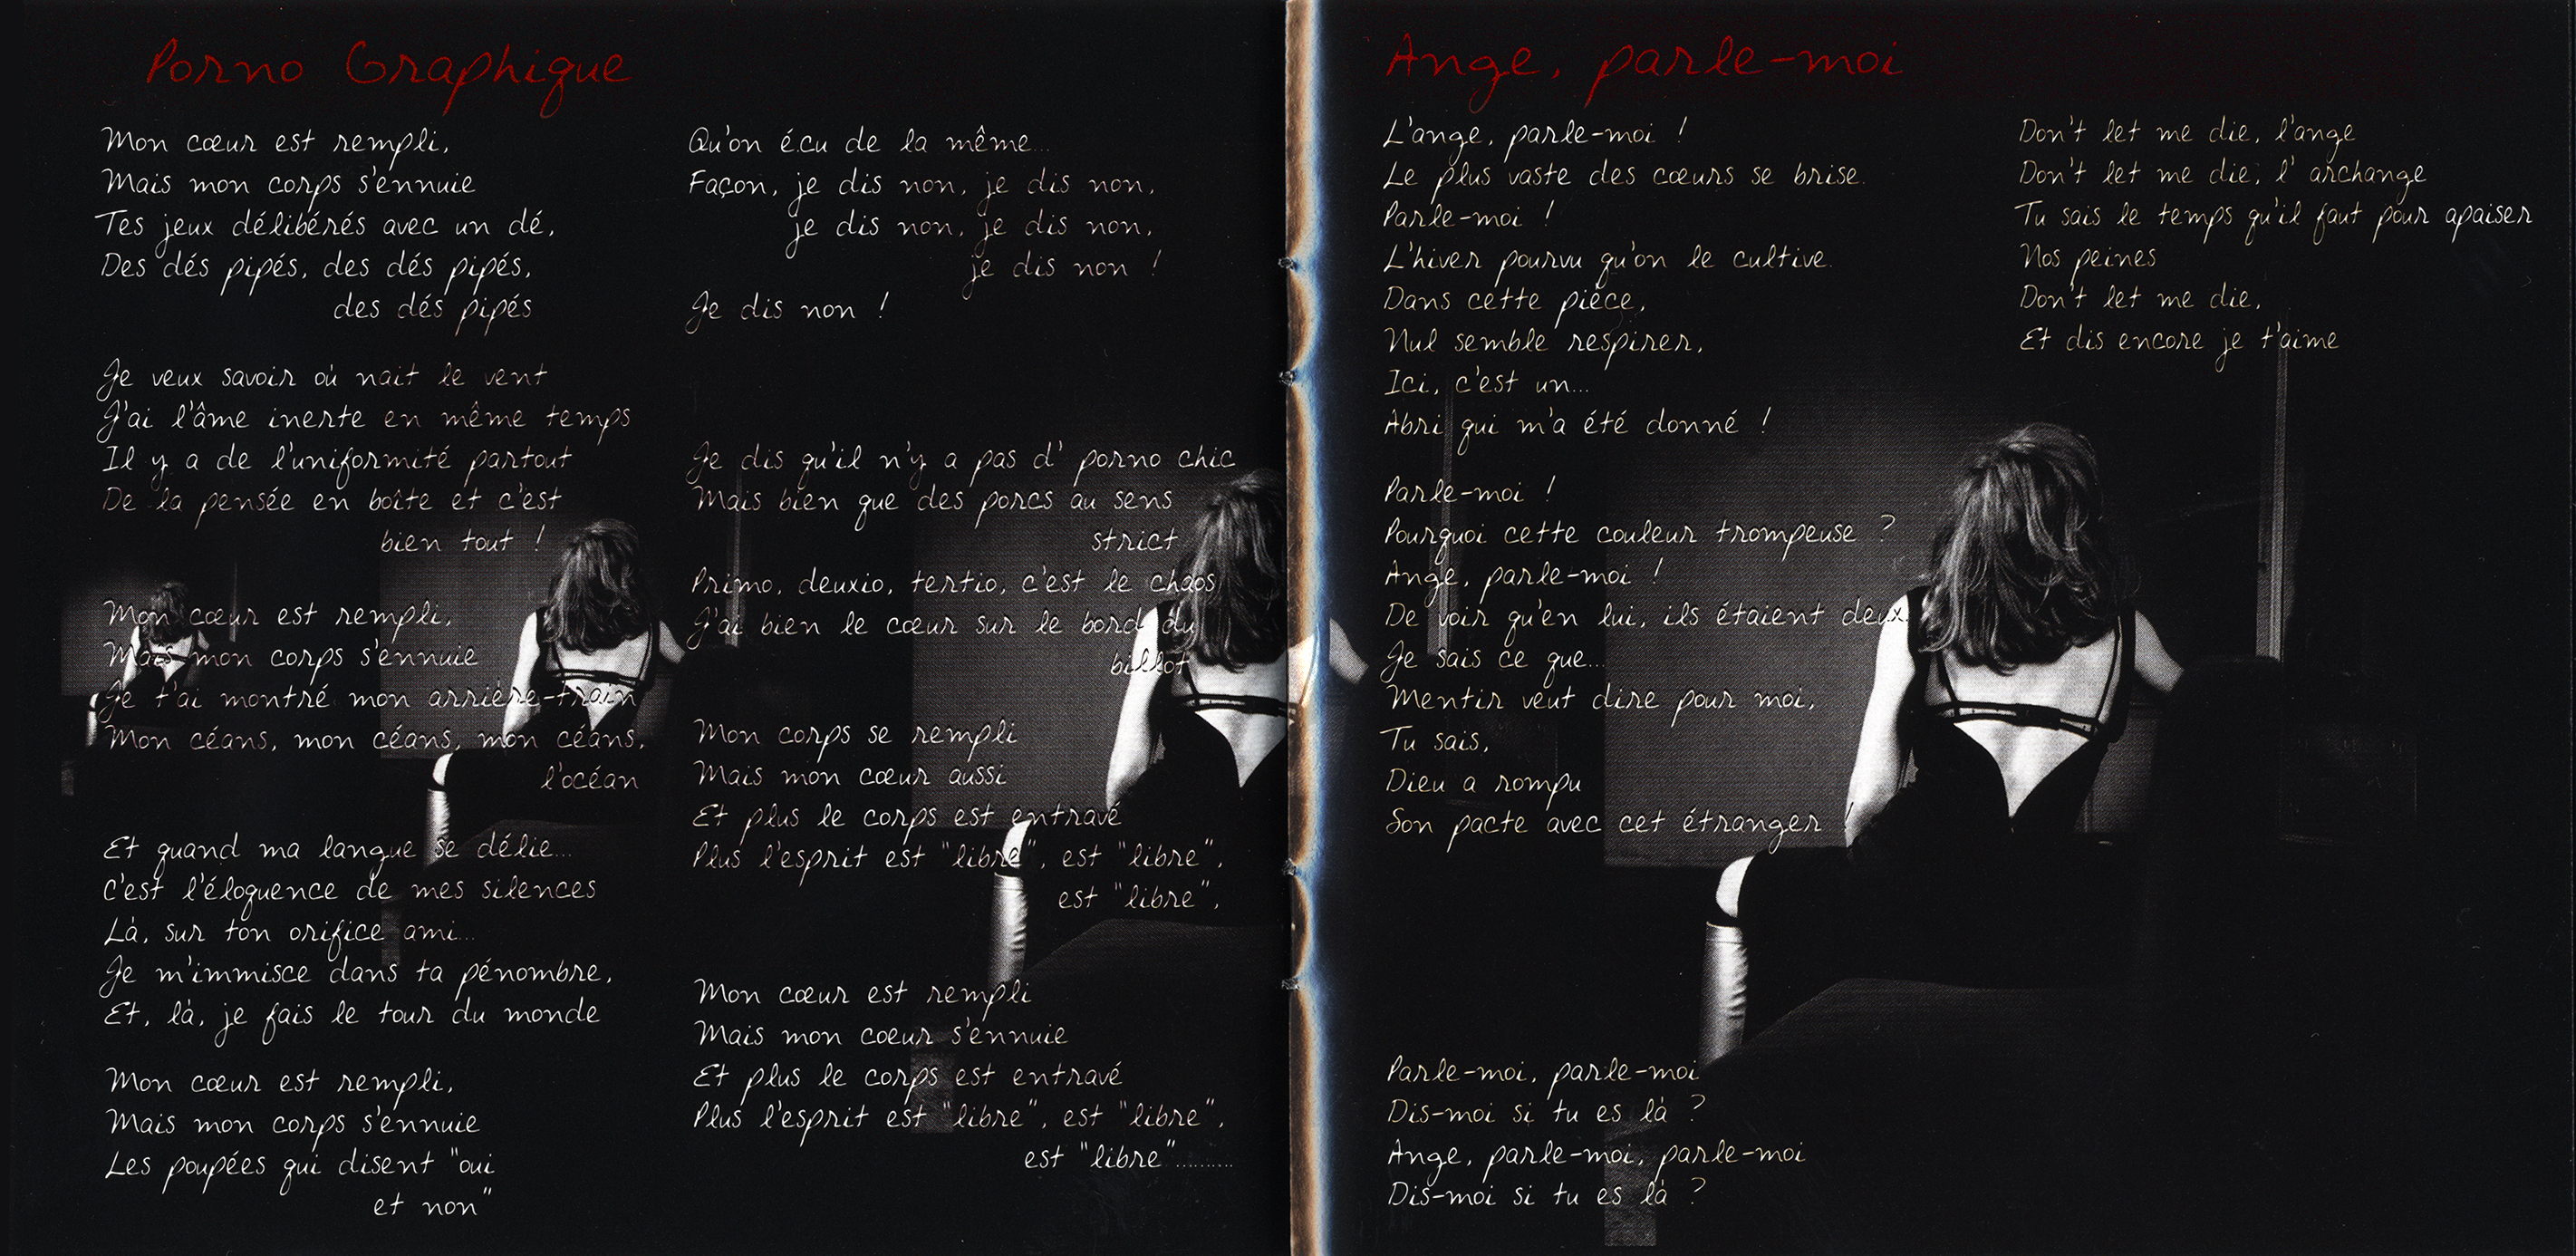 Porno Graphique
Mon cœur est rempli,
Mais mon corps s'ennuie
Tes jeux délibérés avec un dé,
Des dés pipés, des dés pipés,
des dés pipés
Je veux savoir où nait le vent
J'ai l'âme inerte en même temps
Il y a de l'uniformité partout
De la pensée en boîte et c'est
bien tout !
Mon cœur est rempli,
Mais mon corps s'ennuie
Je t'ai montré mon arrière-train
Mon céans, mon céans, mon céans,
l'océan
Et quand ma langue se délie...
C'est l'éloquence de mes silences
Là, sur ton orifice ami...
Je m'immisce dans ta pénombre,
Et, là, je fais le tour du monde
Mon cœur est rempli,
Mais mon corps s'ennuie
Les poupées qui disent "oui
et non"
Qu'on écu de la même...
Façon, je dis non, je dis non,
je dis non, je dis non,
je dis non !
Je dis non !
Je dis qu'il n'y a pas d' porno chic
Mais bien que des porcs au sens
strict
Primo, deuxio, tertio, c'est le chaos
J'ai bien le cœur sur le bord du
billot
Mon corps se rempli
Mais mon cœur aussi
Et plus le corps est entravé
Plus l'esprit est "libre", est "libre",
est "libre",
Mon cœur est rempli
Mais mon coeur s'ennuie
Et plus le corps est entravé
Plus l'esprit est "libre", est "libre",
est "libre".........
Ange, parle-moi
L'ange, parle-moi !
Le plus vaste des cœurs se brise.
Parle-moi !
L'hiver pourvu qu'on le cultive.
Dans cette pièce,
Nul semble respirer,
Ici, c'est un...
Abri qui m'a été donné !
Parle-moi !
Pourquoi cette couleur trompeuse ?
Ange, parle-moi !
De voir qu'en lui, ils étaient deux.
Je sais ce que...
Mentir veut dire pour moi,
Tu sais,
Dieu a rompu
Son pacte avec cet étranger !
Parle-moi, parle-moi
Dis-moi si tu es là ?
Ange, parle-moi, parle-moi
Dis-moi si tu es là ?
Don't let me die, l'ange
Don't let me die, l' archange
Tu sais le temps qu'il faut pour apaiser
Nos peines
Don't let me die,
Et dis encore je t'aime